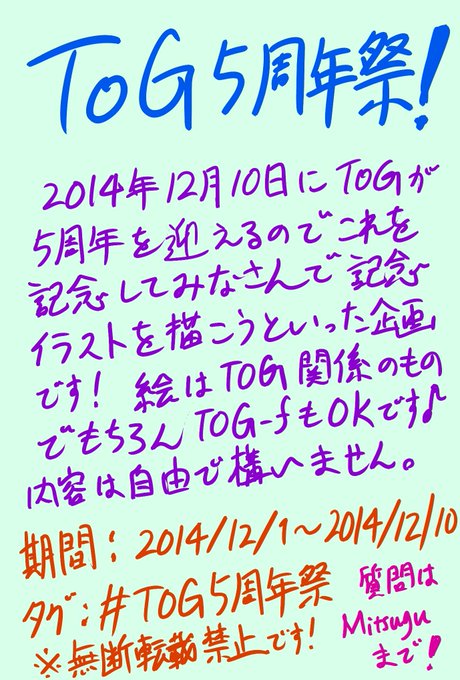 ToG 5周年祭!
2014年12月10日にToGが
5周年を迎えるのでこれを
記念してみなさんで記念
イラストを描こうといった企画
です! 絵はTOG関係のもの
でもちろんTOG-fもOKです♪
内容は自由で構いません。
期間: 2014/12/1〜2014/12/10
タグ:#TOG5周年祭
※無断転載禁止です!
質問は
Mitsuguまで!